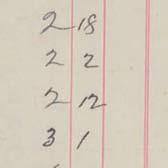 2 18
2 2
2 12
3 1